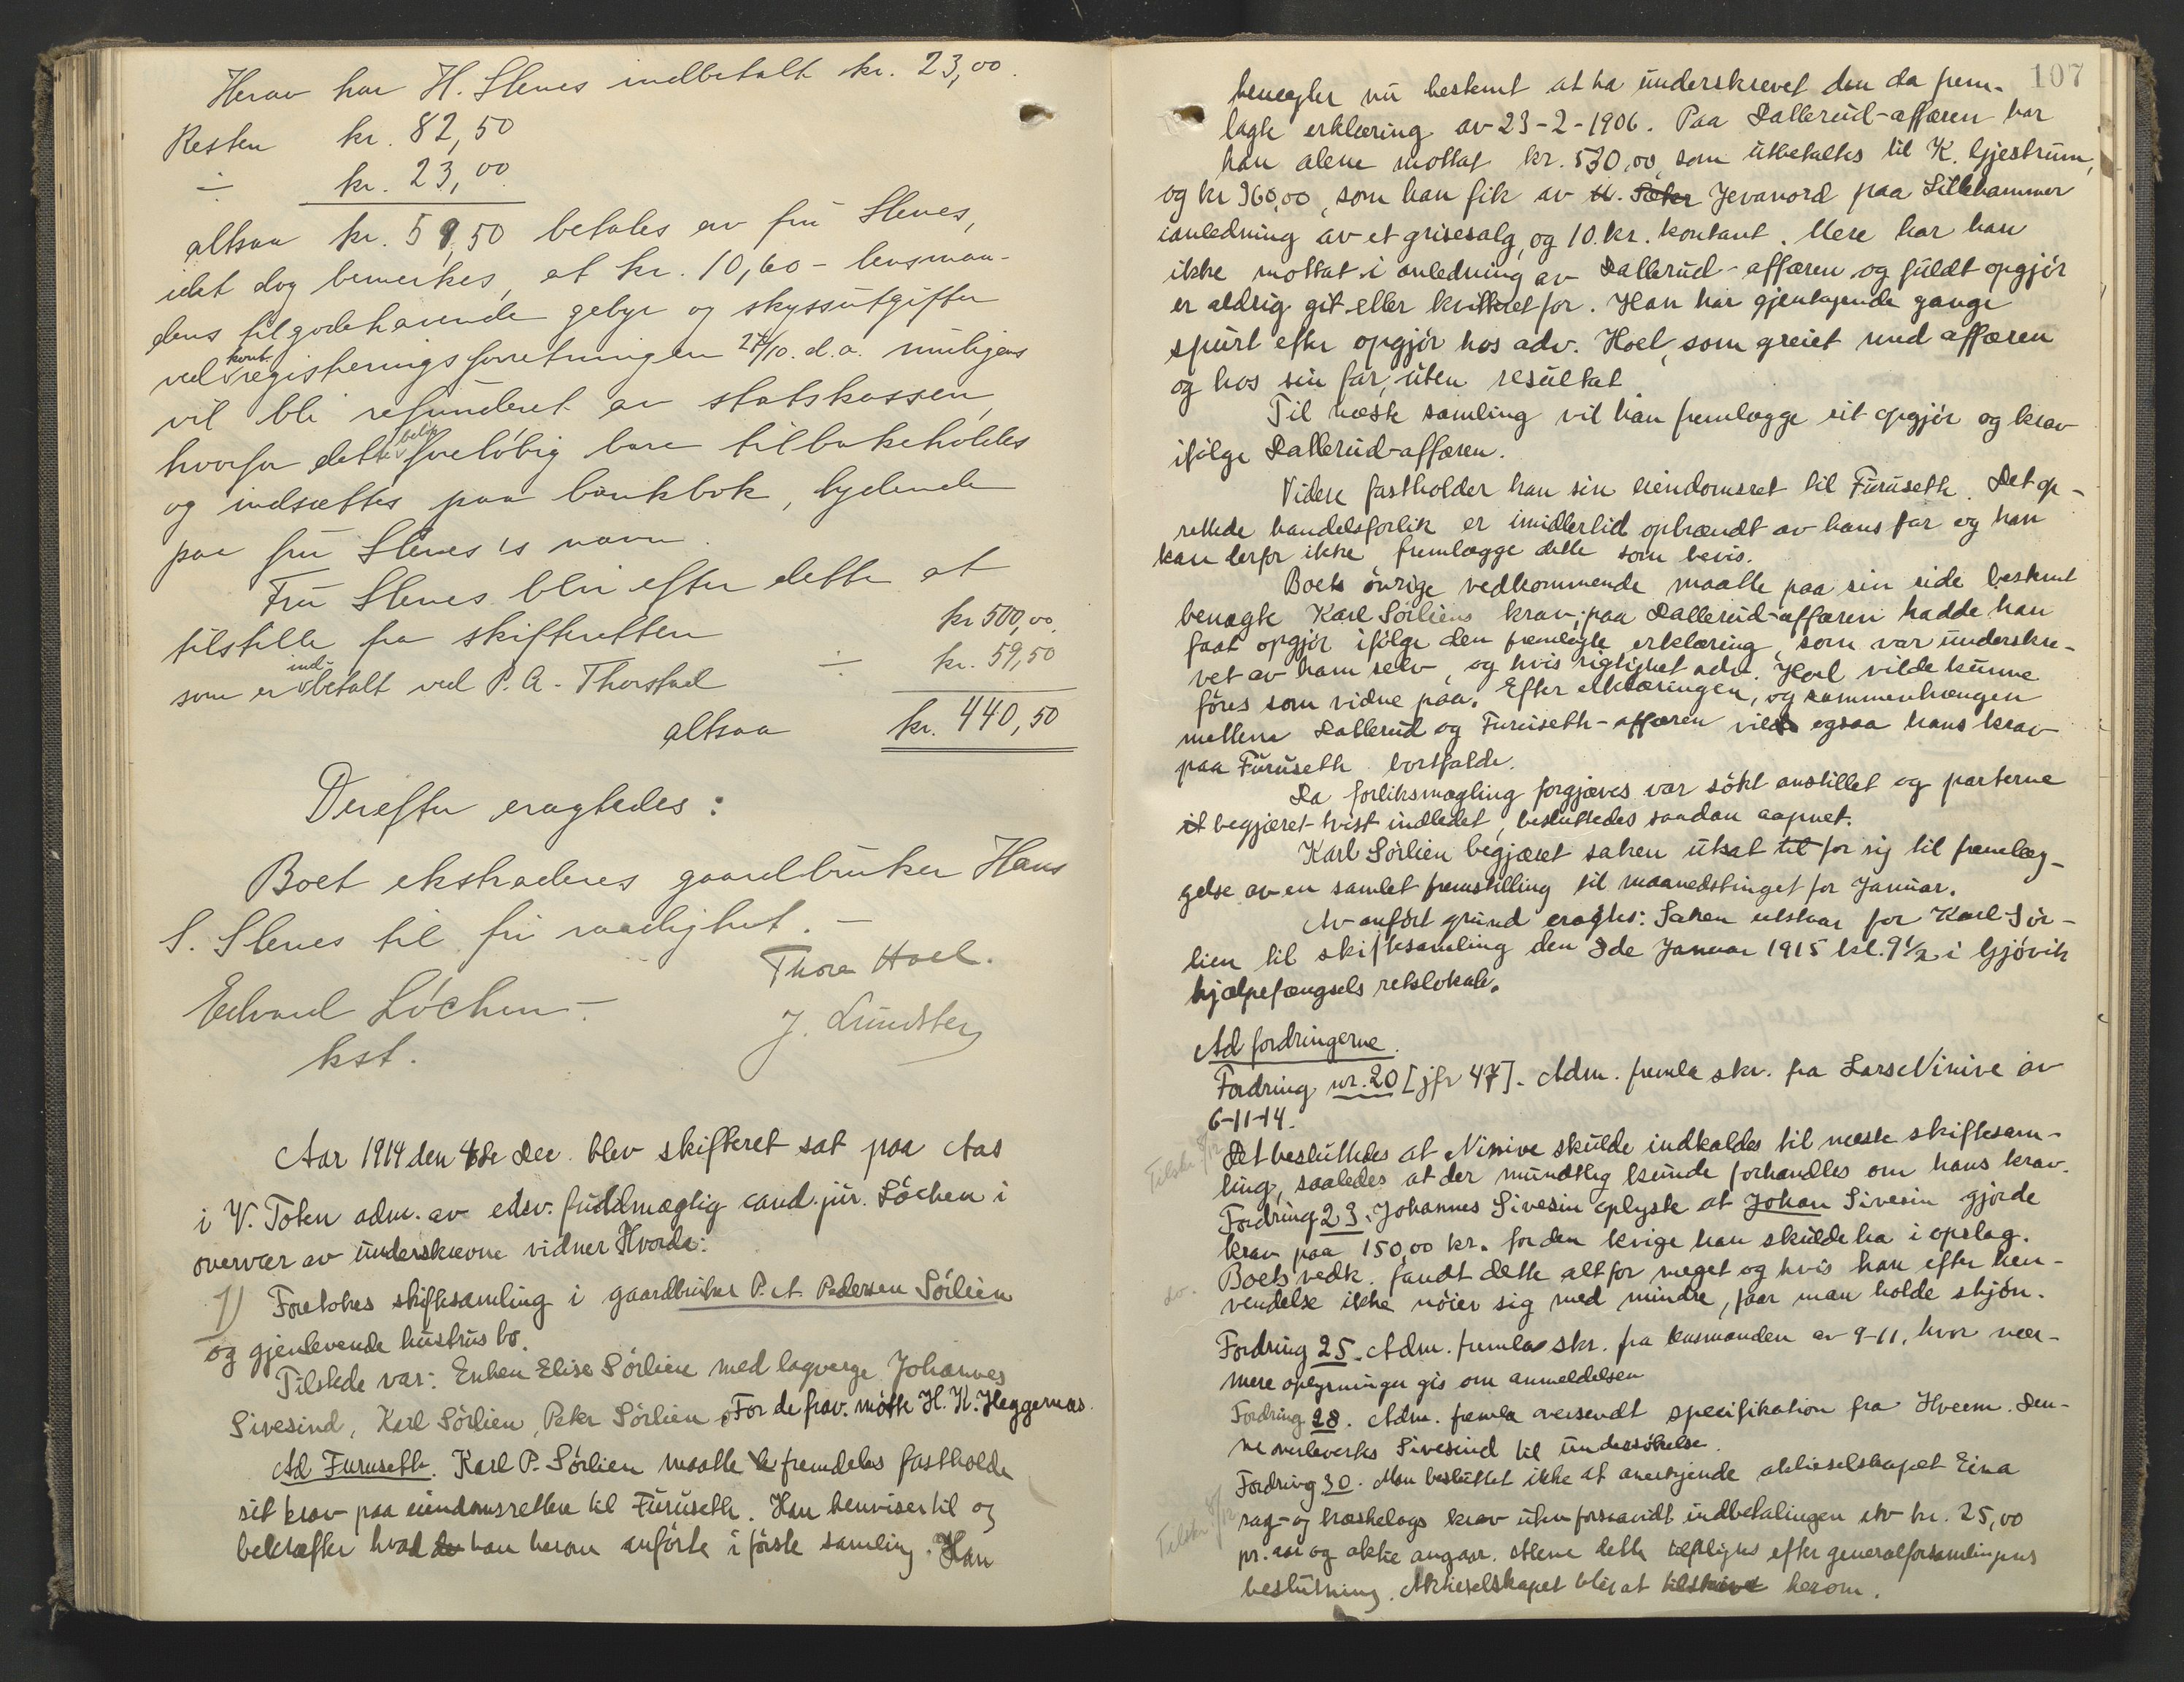 Herav har H. Slenes indbetalt kr. 23,00.
Resten kr. 82,50
÷ kr. 23,00
altsaa kr. 59,50 betales av fru Slenes,
idet dog bemerkes, at kr. 10,60 - lensman-
dens tilgodehavende gebyr og skyssutgifter
ved kont. registreringsforretningen 27/10. d.a. muligens
vil bli refunderet av statskassen,
hvorfor dette beløp foreløbig bare tilbakeholdes
og indsættes paa bankbok, lydende
paa fru Slenes's navn.
Fru Slenes blir efter dette at
tilstille fra skifteretten kr 500,00
som er indbetalt ved P. A. Thorstad ÷ kr. 59,50
altsaa kr. 440,50
Derefter eragtedes:
Boet ekstraderes gaardbruker Hans
S. Slenes til fri raadighet. -
Edvard Löchen - Thora Hoel.
kst. J. Lundsten
Aar 1914 den 4de Dec. blev skifteret sat paa Aas
i V. Toten adm. av edsv. fuldmægtig cand. jur. Löchen i
overvær av underskrevne vidner Hvorda:
1) Foretokes skiftesamling i gaardbruker P. A. Pedersen Sörlien
og gjenlevende hustrus bo.
Tilstede var: Enken Elise Sörlien med lagverge Johannes
Sivesind, Karl Sörlien, Peter Sörlien. For de frav. mötte H. K. Heggernæs.
Ad Furuseth. Karl P. Sörlien maatte fremdeles fastholde
sit krav paa eiendomsretten til Furuseth. Han henviser til og
bekræfter hvad han herom anförte i förste samling. Han
107
benegter nu bestemt at ha underskrevet den da frem-
lagte erklæring av 23-2-1906. Paa Dallerud-affæren har
han alene mottat kr. 530,00, som utbetaltes til K. Gjestrum,
og kr 360,00, som han fik av Jevanord paa Lillehammer
ianledning av et grisesalg, og 10. kr. kontant. Mere har han
ikke mottat i anledning av Dallerud-affæren og fuldt opgjör
er aldrig git eller kvitteret for. Han har gjentagende gange
spurt efter opgjör hos adv. Hoel, som greiet med affæren
og hos sin far, uten resultat.
Til næste samling vil han fremlægge sit opgjör og krav
ifölge Dallerud-affæren.
Videre fastholder han sin eiendomsret til Furuseth. Det op-
rettede handelsforlik er imidlertid opbrændt av hans far og han
kan derfor ikke fremlægge dette som bevis.
Boets övrige vedkommende maatte paa sin side bestemt
benegte Karl Sörliens krav; paa Dallerud-affæren hadde han
faat opgjör ifölge den fremlagte erklæring, som var underskre-
vet av ham selv, og hvis rigtighet adv. Hoel vilde kunne
föres som vidne paa. Efter erklæringen, og sammenhængen
mellem Dallerud og Furuseth-affæren vilde ogsaa hans krav
paa Furuseth bortfalde.
Da forliksmægling forgjæves var sökt anstillet og parterne
begjæret tvist indledet, besluttedes saadan aapnet.
Karl Sörlien begjæret saken utsat for sig til fremlæg-
gelse av en samlet fremstilling til maanedstinget for Januar.
Av anfört grund eragtes: Saken utstaar for Karl Sör-
lien til skiftesamling den 8de Januar 1915 kl. 9½ i Gjövik
hjælpefængsels retslokale.
Ad fordringerne.
Fordring nr. 20 [jfr 47]. Adm. fremla skr. fra Lars Ninive av
6-11-14.
Tilskr 8/12 Det besluttedes at Ninive skulde indkaldes til næste skiftesam-
ling, saaledes at der mundtlig kunde forhandles om hans krav.
Fordring 23. Johannes Sivesin oplyste at Johan Sivesin gjorde
krav paa 150,00 kr. for den kvige han skulde ha i opslag.
Boets vedk. fandt dette altfor meget og hvis han efter hen-
do. vendelse ikke nöier sig med mindre, faar man holde skjön.
Fordring 25. Adm. fremla skr. fra lensmanden av 9-11, hvor nær-
mere oplysninger gis om anmeldelsen
Fordring 28. Adm. fremla oversendt specifikation fra Hveem. Den-
ne overlevertes Sivesind til undersökelse.
Fordring 30. Man besluttet ikke at anerkjende aktieselskapet Eina
Tilskr 8/12 sag- og træskelags krav uten forsaavidt indbetalingen av kr. 25,00
pr. aar og aktie angaar. Alene dette efter generalforsamlingens
beslutning. Aktieselskapet blir at tilskrive herom.